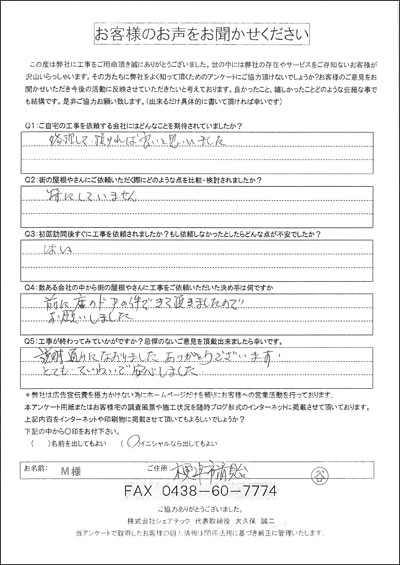 お客様のお声をお聞かせください
この度は弊社に工事をご用命頂き誠にありがとうございました。世の中には弊社の存在やサービスをご存知ないお客様が
沢山いらっしゃいます。その方たちに弊社をよく知って頂くためのアンケートにご協力頂けないでしょうか?お客様のご意見をお
聞かせいただき今後の活動に反映させていただきたいと考えております。良かったこと、嬉しかったことどのような些細な事で
も結構です。是非ご協力お願い致します。(出来るだけ具体的に書いて頂ければ幸いです)
Q1:ご自宅の工事を依頼する会社にはどんなことを期待されていましたか?
修理して頂ければ良いと思いました
Q2:街の屋根やさんにご依頼いただく際にどのような点を比較・検討されましたか?
特にしていません
Q3:初回訪問後すぐに工事を依頼されましたか?もし依頼しなかったとしたらどんな点が不安でしたか?
はい
Q4:数ある会社の中から街の屋根やさんに工事をご依頼いただいた決め手は何ですか
前に 庭のドアの件できて頂きましたので
お願いしました
Q5:工事が終わってみていかがですか?忌憚のないご意見を頂戴出来ましたら幸いです。
説明通りになおりました ありがとうございます
とても ていねいで安心しました
*弊社は広告宣伝費を極力かけない為にホームページだけを頼りにお客様への営業活動を行っております。
本アンケート用紙またはお客様宅の調査風景や施工状況を随時ブログ形式のインターネットに掲載させて頂いております。
上記内容をインターネットや印刷物に掲載させて頂いてもよろしいでしょうか?
下記の中から〇印をお付下さい。
( )名前を出してもよい (〇)イニシャルなら出してもよい
お名前: M様 ご住所: 木更津市清見台
谷
FAX 0438-60-7774
ご協力ありがとうございました。
株式会社シェアテック 代表取締役 大久保 誠二
当アンケートで取得したお客様の個人情報は関係法規に基づき厳正に管理いたします。